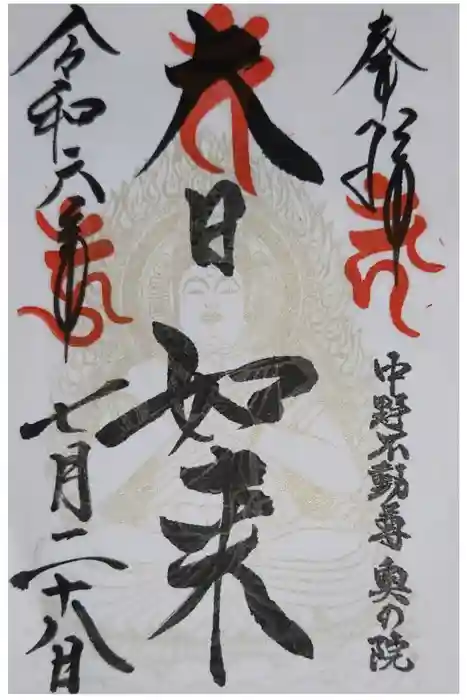 奉拝
中野不動尊 奥の院
大日如来
令和六年
七月二十八日